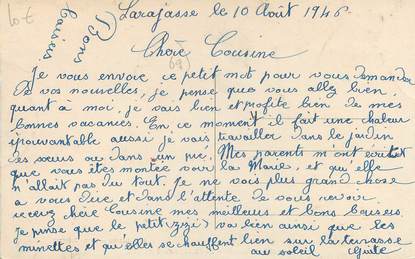 Larajasse le 10 Août 1946
Bons
baisers
Chère Cousine
Je vous envoie ce petit mot pour vous demander
de vos nouvelles, je pense que vous allez bien
quant à moi, je vais bien et profite bien de mes
bonnes vacances. En ce moment il fait une chaleur
épouvantable aussi je vais travailler dans le jardin
des sœurs ou dans un pré. Mes parents m'ont écrit
que vous êtes montée voir la Marie, et qu'elle
n'allait pas du tout. Je ne vois plus grand chose
à vous dire et dans l'attente de vous revoir
recevez chère Cousine mes meilleurs et bons baisers.
je pense que le petit (zizi) va bien ainsi que les
minettes et qu'elles se chauffent bien sur la terrasse
au soleil Guite